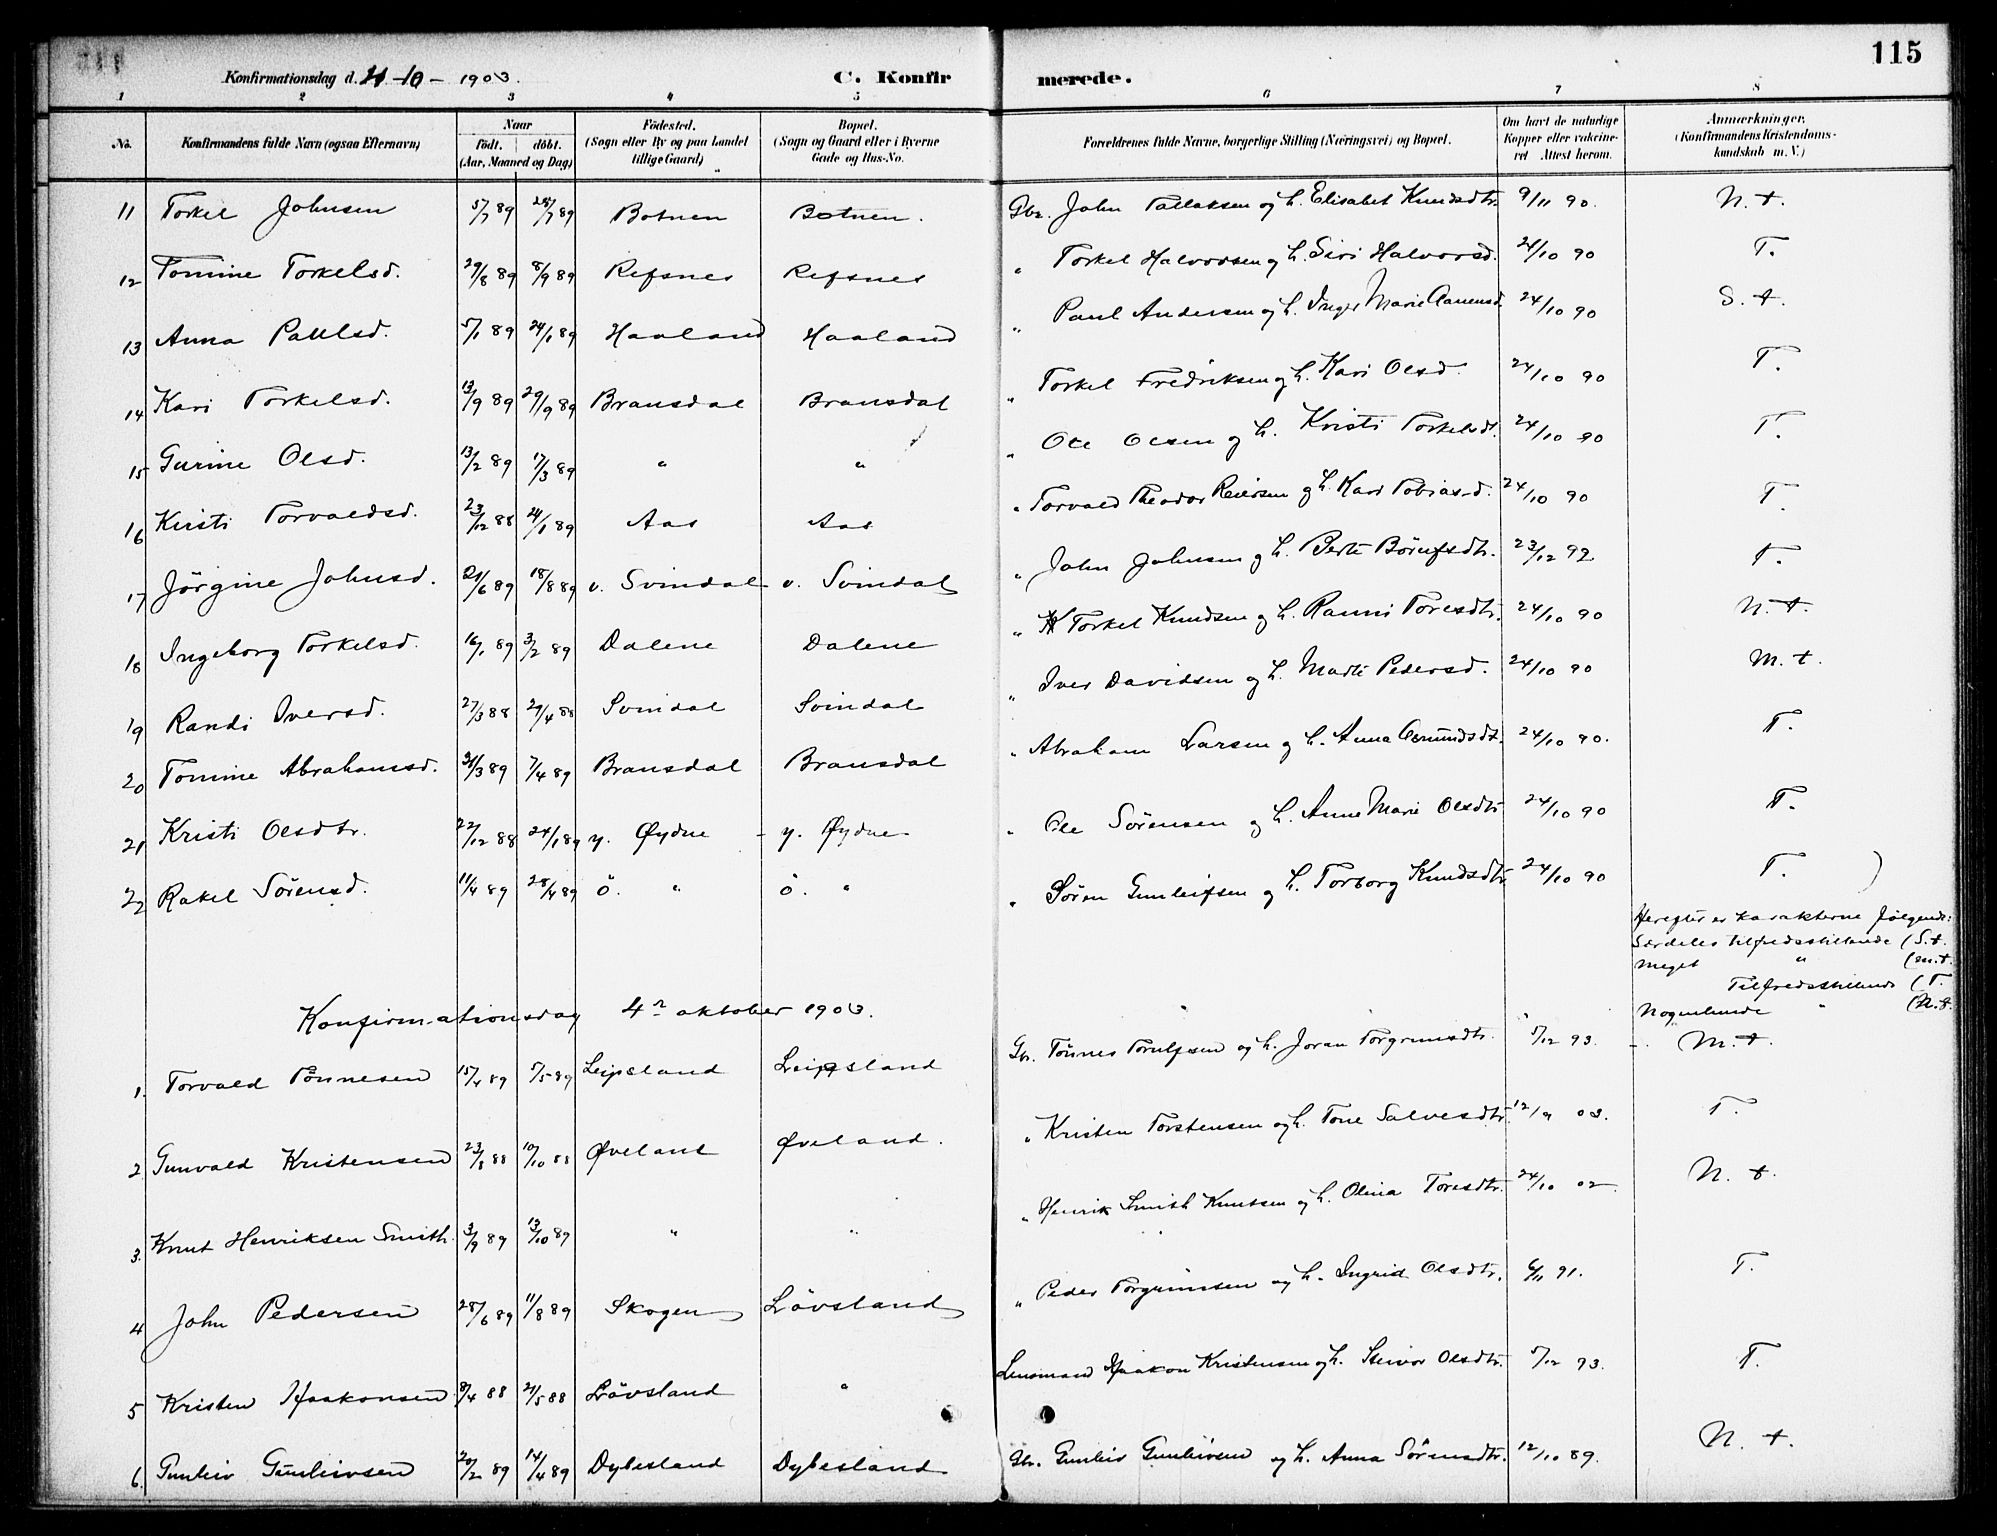 115
Konfirmationsdag d. 11-10- 1903.
C. Konfirmerede.
1 2 3 4 5 6 7 8
No.
Konfirmandens fulde Navn (ogsaa Efternavn)
Naar
født. døbt.
(Aar, Maaned og Dag)
Fødested.
(Sogn eller By og paa Landet
tillige Gaard)
Bopæl.
(Sogn og Gaard eller i Byerne
Gade og Hus-No.
Forældrenes fulde Navne, borgerlige Stilling (Næringsvei) og Bopæl.
Om havt de naturlige
Kopper eller vaccine-
ret Attest herom.
Anmærkninger.
(Konfirmandens Kristendoms-
kundskab m. V.)
11 Torkel Johnsen 5/7 89 28/7 89 Botnen Botnen. Gbr. John Tallaksen og h. Elisabet Knudsdtr. 9/11 90. N. t.
12 Tomine Torkelsd. 29/8 89 8/9 89 Refsnes Refsnes " Torkel Halvorsen og h. Siri Halvorsd. 24/10 90 T.
13 Anna Paulsd. 5/1 89 24/1 89 Haaland Haaland " Paul Andersen og h. Inger Marie Aanensd. 24/10 90 S. t.
14 Kari Torkelsd. 13/9 89 29/9 89 Bransdal Bransdal " Torkel Fredriksen og h. Kari Olsd. 24/10 90 T.
15 Gurine Olsd. 13/2 89 17/3 89 " " " Ole Olsen og h. Kristi Torkelsdt. 24/10 90 T.
16 Kirsti Torvaldsd. 23/12 88 24/1 89 Aas Aas " Torvald Theodor Reiersen og h. Kari Tobiasd. 24/10 90 T.
17 Jörgine Johnsd. 21/6 89 18/8 89 v. Svindal v. Svindal " John Johnsen og h. Berte Börufsdtr. 23/12 92 T.
18 Ingeborg Torkelsd. 16/1 89 3/2 89 Dalene Dalene " Torkel Knudsen og h. Ranni Toresdtr. 24/10 90 N. t.
19 Randi Iversd. 27/3 88 29/4 88 Svindal Svindal " Iver Davidsen og h. Marte Pedersd. 24/10 90 M. t.
20 Tomine Abrahamsd. 21/3 89 7/4 89 Bransdal Bransdal " Abraham Larsen og h. Anna Gumundsdt. 24/10 90. T.
21 Kristi Olsdtr. 22/12 88 24/1 89 y. Øydne y. Øydne " Ole Sörensen og h. Anne Marie Olsdtr 24/10 90 T.
22 Rakel Sörensd. 11/4 89 28/4 89 ö. " ö. " " Sören Gunleifsen og h. Torborg Knudsdtr 24/10 90 T.
Herefter er karakterne følgende:
Særdeles tilfredsstillende (S.t.
Meget " (M.t.
Tilfredsstillende (T.
Nogenlunde " (N.t.
Konfirmationsdag 4de oktober 1903.
1. Torvald Tönnesen 15/4 89 5/5 89 Leipsland Leipsland Gbr. Tönnes Torulfsen og h. Joran Torgrimsdtr. 5/12 93. M. t.
2. Gunvald Kristensen 23/8 88 10/10 88 Øveland Øveland. " Kristen Torstensen og h. Tone Salvesdtr. 12/9 03. T.
3. Knut Henriksen Smith. 3/9 89 13/10 89 " " " Henrik Smith Knutsen og h. Olina Toresdtr. 24/10 02. N. t.
4 John Pedersen 28/6 89 11/8 89 Skogen Lövsland " Peder Torgrimsen og h. Ingrid Olsdtr. 6/11 91. T.
5 Kristen Haakonsen 8/4 88 21/5 88 Lövsland " Lensmand Haakon Kristensen og h. Steivor Olsdtr. 5/12 93. T.
6. Gunleiv Gunleivsen 20/2 89 14/4 89 Dybesland Dybesland Gbr. Gunleiv Gunleivsen og h. Anna Sörensdtr. 12/10 89. N. t.